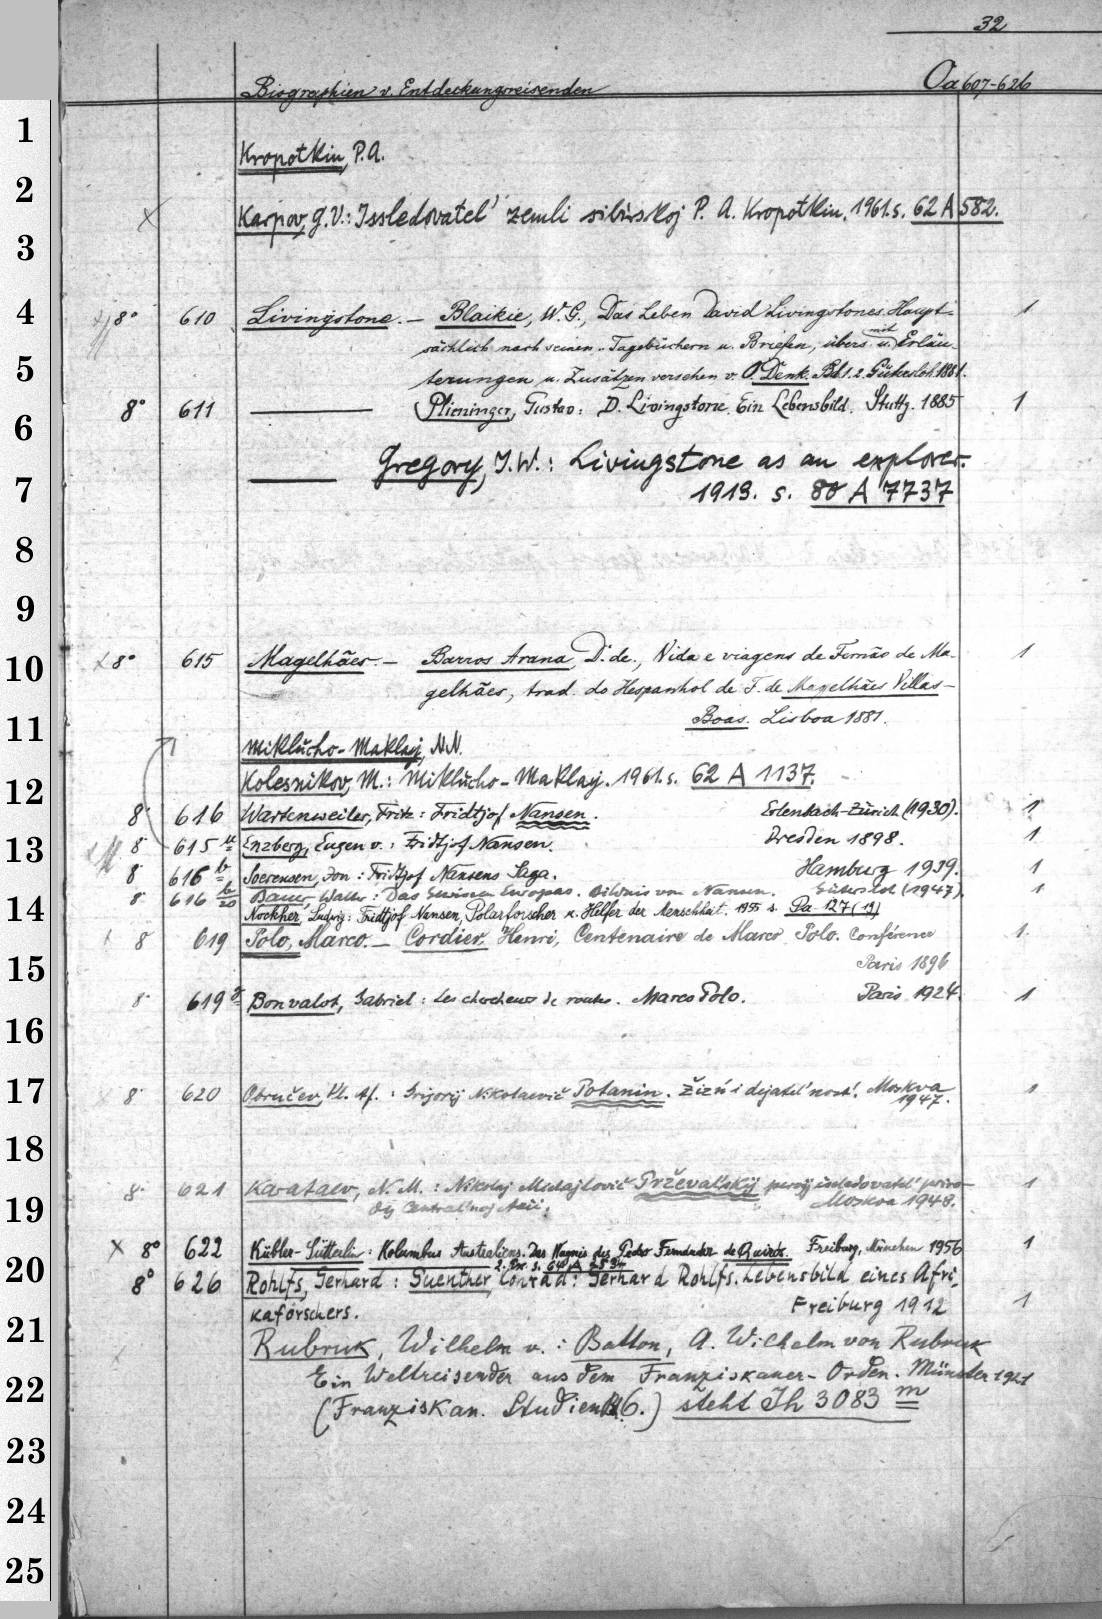 32
Biographien v. Entdeckungsreisenden Oa 607-626
1
Kropotkin, P.A.
2
Karpov, G.V.: Issledovatel' zemli sibirskoj P. A. Kropotkin. 1961. s. 62 A 582.
3
4 8° 610 Livingstone. — Blaikie, W. G., Das Leben David Livingstones. Haupt- 1
sächlich nach seinen Tagebüchern u. Briefen, übers. u. mit Erläu-
5
terungen u. Zusätzen versehen v. O. Denk. Bd 1. 2 Gütersloh 1881.
8° 611 — Plieninger, Gustav: D. Livingstone. Ein Lebensbild. Stuttg. 1885 1
6
— Gregory, J. W.: Livingstone as an explorer.
7 1913. s. 80 A 7737
8
9
10 8° 615 Magelhães. — Barros Arana, D. de., Vida e viagens de Fernão de Ma- 1
gelhães, trad. do Hespanhol de F. de Magelhães Villas-
11 Boas. Lisboa 1881.
Miklucho-Maklaj, N.N.
Kolesnikov, M.: Miklucho-Maklaj. 1961. s. 62 A 1137.
12
8° 616 Wartenweiler, Fritz: Fridtjof Nansen. Erlenbach-Zürich (1930). 1
13 8° 615 a Enzberg, Eugen v.: Fridtjof Nansen. Dresden 1898. 1
8° 616 b Soerensen, Jon: Fridtjof Nansens Saga. Hamburg 1939. 1
8° 616 b/20 Bauer, Walter: Das Gewissen Europas. Bildnis von Nansen. Gütersloh (1947). 1
14 Nockher, Ludwig: Fridtjof Nansen, Polarforscher u. Helfer der Menschheit. 1955 s. Pa 127 (19)
8° 619 Polo, Marco. — Cordier, Henri, Centenaire de Marco Polo. Conférence 1
15 Paris 1896
8° 619 Bonvalot, Gabriel: Les chercheurs de routes. Marco Polo. Paris 1924. 1
16
17 8° 620 Obručev, Vl. Af.: Grigorij Nikolaevič Potanin. Žizń i dejatel'nost'. Moskva 1
1947.
18
8° 621 Karataev, N. M.: Nikolaj Michajlovič Prževal'skij pervyj issledovatel' priro- 1
19 dy Central'noj Azii. Moskva 1948.
8° 622 Kübler-Sütterlin: Kolumbus Australiens. Das Wagnis des Pedro Fernandez de Quirós. Freiburg, München 1956 1
20 2. Ex. s.
8° 626 Rohlfs, Gerhard: Guenther, Conrad: Gerhard Rohlfs. Lebensbild eines Afri-
kaforschers. Freiburg 1912 1
21
Rubruk, Wilhelm v.: Batton, A. Wilhelm von Rubruk
22 Ein Weltreisender aus dem Franziskaner-Orden. Münster 1921
(Franziskan. Studien 6.) steht Ih 3083 m
23
24
25